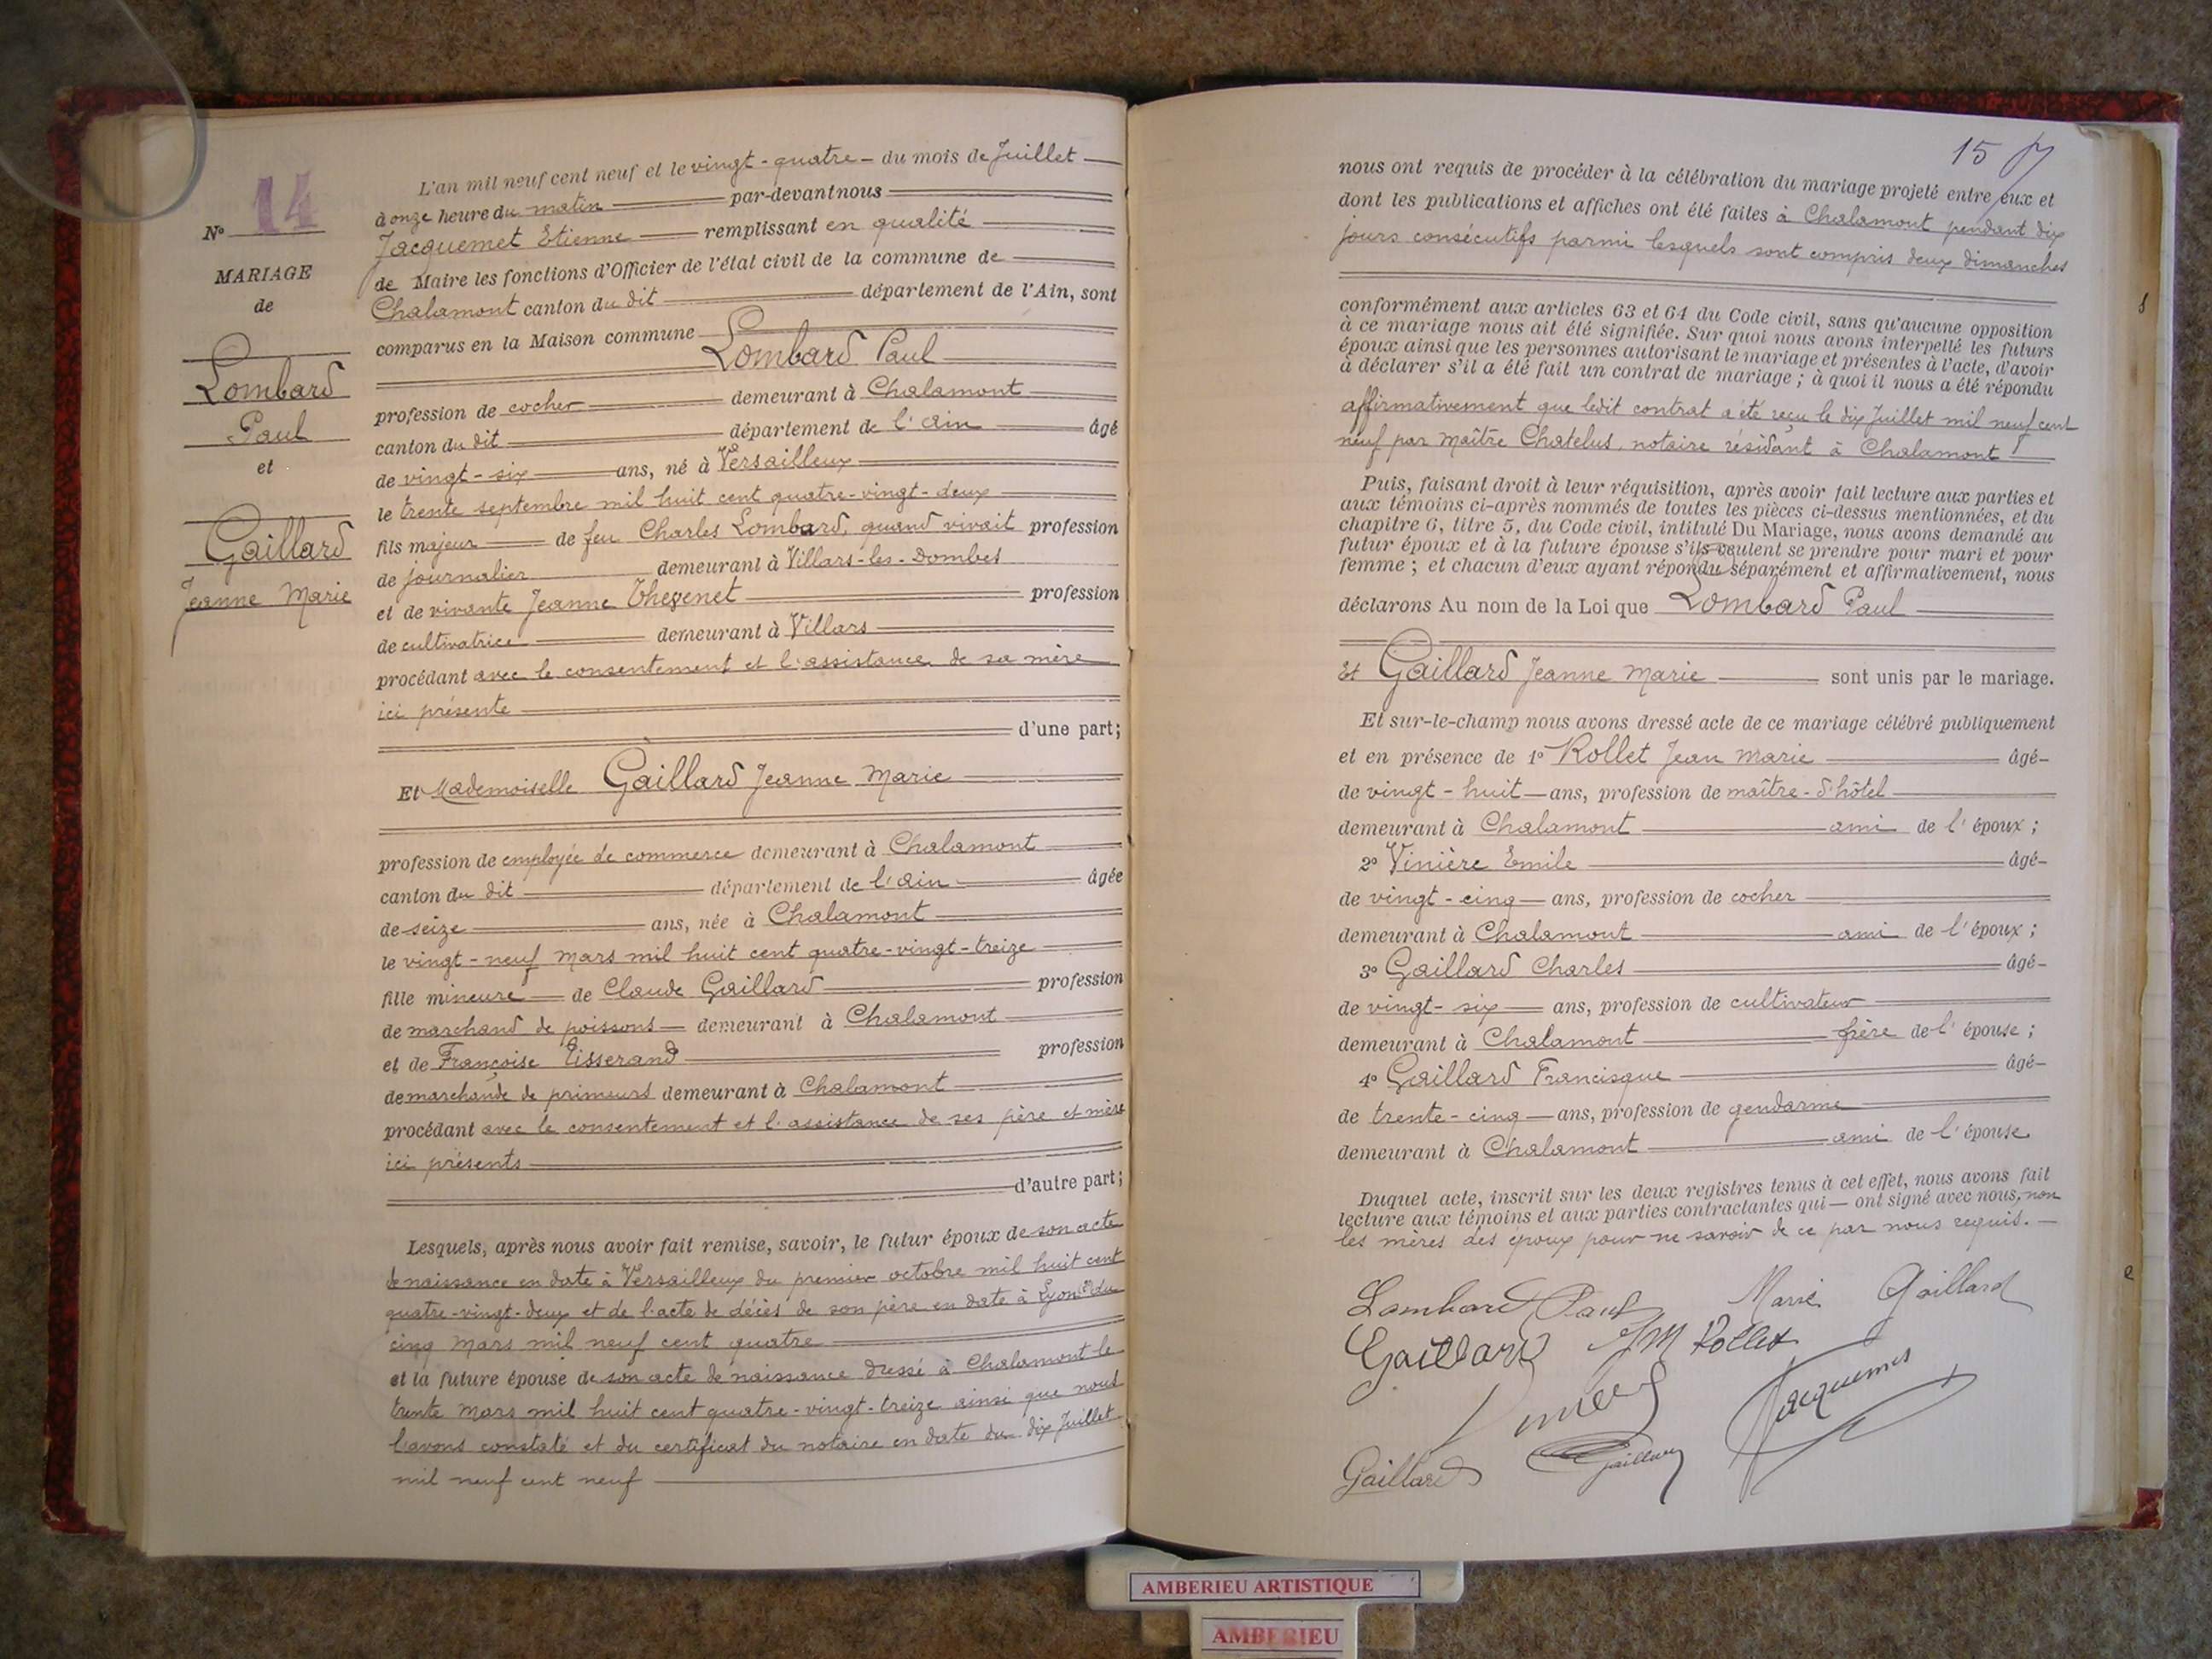 L'an mil neuf cent neuf et le vingt-quatre du mois de Juillet
à onze heure du matin par-devant nous
Jacquemet Etienne remplissant en qualité
de Maire les fonctions d'Officier de l'état civil de la commune de
Chalamont canton du dit département de l'Ain, sont
comparus en la Maison commune
Lombard Paul
profession de cocher demeurant à Chalamont
canton du dit département de l'Ain âgé
de vingt-six ans, né à Versailleux
le trente septembre mil huit cent quatre-vingt-deux
fils majeur de feu Charles Lombard, quand vivait profession
de journalier demeurant à Villars-les-Dombes
et de vivante Jeanne Thevenet profession
de cultivatrice demeurant à Villars
procédant avec le consentement et l'assistance de sa mère
ici présente
d'une part;
Et Mademoiselle Gaillard Jeanne Marie
profession de employée de commerce demeurant à Chalamont
canton du dit département de l'Ain âgée
de seize ans, née à Chalamont
le vingt-neuf Mars mil huit cent quatre-vingt-treize
fille mineure de Claude Gaillard profession
de marchand de poissons demeurant à Chalamont
et de Françoise Tisserand profession
de marchande de primeurs demeurant à Chalamont
procédant avec le consentement et l'assistance de ses père et mère
ici présents
d'autre part;
Lesquels, après nous avoir fait remise, savoir, le futur époux de son acte
de naissance en date à Versailleux du premier octobre mil huit cent
quatre-vingt-deux et de l'acte de décès de son père en date à Lyon du
cinq Mars mil neuf cent quatre
et la future épouse de son acte de naissance dressé à Chalamont le
trente Mars mil huit cent quatre-vingt-treize ainsi que nous
l'avons constaté et du certificat du notaire en date du dix Juillet
mil neuf cent neuf
N° 14
MARIAGE
de
Lombard
Paul
et
Gaillard
Jeanne Marie
15
nous ont requis de procéder à la célébration du mariage projeté entre eux et
dont les publications et affiches ont été faites à Chalamont pendant dix
jours consécutifs parmi lesquels sont compris deux dimanches
conformément aux articles 63 et 64 du Code civil, sans qu'aucune opposition
à ce mariage nous ait été signifiée. Sur quoi nous avons interpellé les futurs
époux ainsi que les personnes autorisant le mariage et présentes à l'acte, d'avoir
à déclarer s'il a été fait un contrat de mariage; à quoi il nous a été répondu
affirmativement que ledit contrat a été reçu le dix Juillet mil neuf cent
neuf par Maître Chatelus, notaire résidant à Chalamont
Puis, faisant droit à leur réquisition, après avoir fait lecture aux parties et
aux témoins ci-après nommés de toutes les pièces ci-dessus mentionnées, et du
chapitre 6, titre 5, du Code civil, intitulé Du Mariage, nous avons demandé au
futur époux et à la future épouse s'ils veulent se prendre pour mari et pour
femme; et chacun d'eux ayant répondu séparément et affirmativement, nous
déclarons Au nom de la Loi que Lombard Paul
Et Gaillard Jeanne Marie sont unis par le mariage.
Et sur-le-champ nous avons dressé acte de ce mariage célébré publiquement
et en présence de 1° Rollet Jean Marie âgé
de vingt-huit ans, profession de maître-d'hôtel
demeurant à Chalamont ami de l'époux;
2° Vinière Emile âgé
de vingt-cinq ans, profession de cocher
demeurant à Chalamont ami de l'époux;
3° Gaillard Charles âgé
de vingt-six ans, profession de cultivateur
demeurant à Chalamont frère de l'épouse;
4° Gaillard Francisque âgé
de trente-cinq ans, profession de gendarme
demeurant à Chalamont ami de l'épouse
Duquel acte, inscrit sur les deux registres tenus à cet effet, nous avons fait
lecture aux témoins et aux parties contractantes qui ont signé avec nous, non
les mères des époux pour ne savoir de ce par nous requis.
Lombard Paul Marie Gaillard
Gaillard JM Rollet
Jacquemet
Gaillard Gaillard
AMBERIEU ARTISTIQUE
AMBERIEU